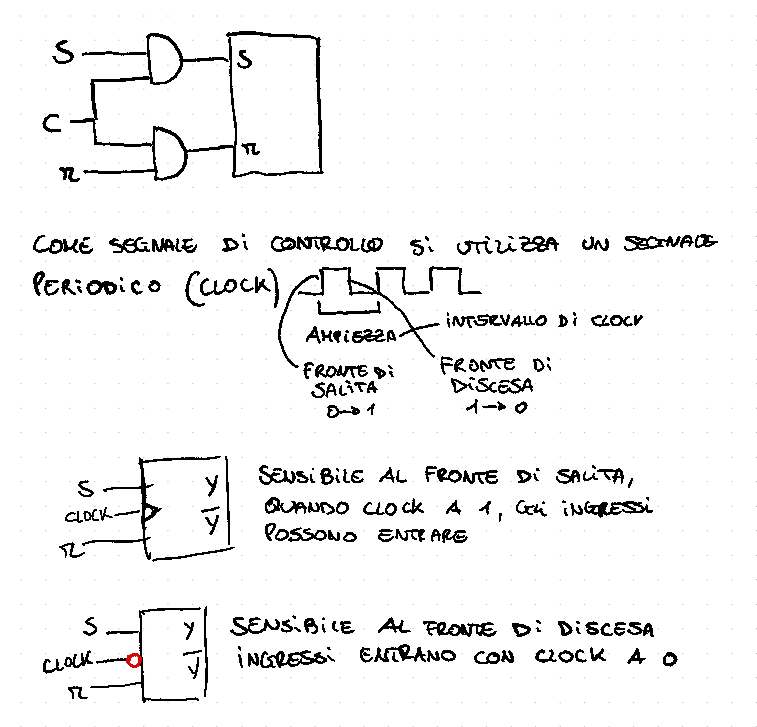 S
S
C
r
r
COME SEGNALE DI CONTROLLO SI UTILIZZA UN SEGNALE
PERIODICO (CLOCK)
AMPIEZZA
INTERVALLO DI CLOCK
FRONTE DI
SALITA
0→1
FRONTE DI
DISCESA
1→0
S
CLOCK
r
Y
Y̅
SENSIBILE AL FRONTE DI SALITA,
QUANDO CLOCK A 1, GLI INGRESSI
POSSONO ENTRARE
S
CLOCK
r
Y
Y̅
SENSIBILE AL FRONTE DI DISCESA
INGRESSI ENTRANO CON CLOCK A 0